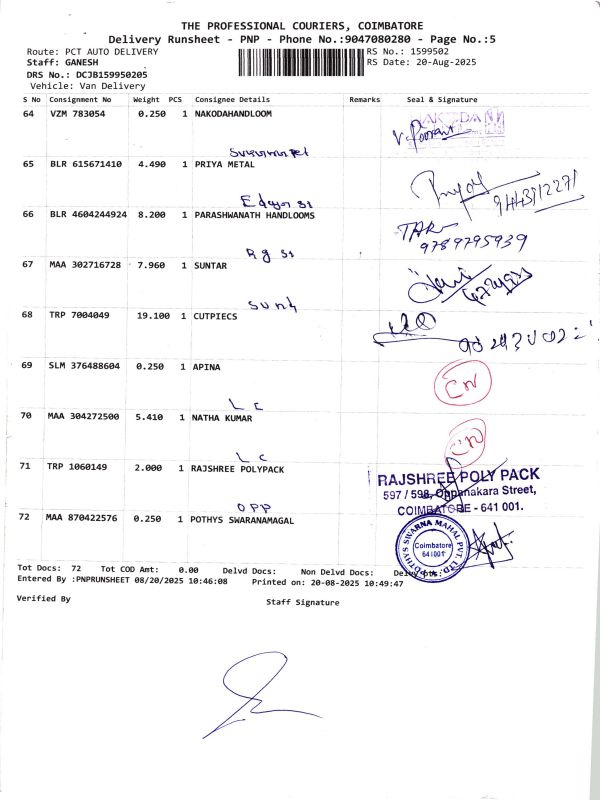 THE PROFESSIONAL COURIERS, COIMBATORE
Delivery Runsheet - PNP - Phone No.:9047080280 - Page No.:5
Route: PCT AUTO DELIVERY RS No.: 1599502
Staff: GANESH RS Date: 20-Aug-2025
DRS No.: DCJB159950205
Vehicle: Van Delivery
S No Consignment No Weight PCS Consignee Details Remarks Seal & Signature
64 VZM 783054 0.250 1 NAKODAHANDLOOM
65 BLR 615671410 4.490 1 PRIYA METAL
9443912271
66 BLR 4604244924 8.200 1 PARASHWANATH HANDLOOMS
9789795939
R g st
67 MAA 302716728 7.960 1 SUNTAR
68 TRP 7004049 19.100 1 CUTPIECS
69 SLM 376488604 0.250 1 APINA
CN
L C
70 MAA 304272500 5.410 1 NATHA KUMAR
CN
L C
71 TRP 1060149 2.000 1 RAJSHREE POLYPACK
RAJSHREE POLY PACK
597 / 598, Oppanakara Street,
COIMBATORE - 641 001.
OPP
72 MAA 870422576 0.250 1 POTHYS SWARANAMAGAL
POTHYS SWARNA MAHAL PVT. LTD.
Coimbatore
641001
Tot Docs: 72 Tot COD Amt: 0.00 Delvd Docs: Non Delvd Docs:
Entered By :PNPRUNSHEET 08/20/2025 10:46:08 Printed on: 20-08-2025 10:49:47
Verified By
Staff Signature